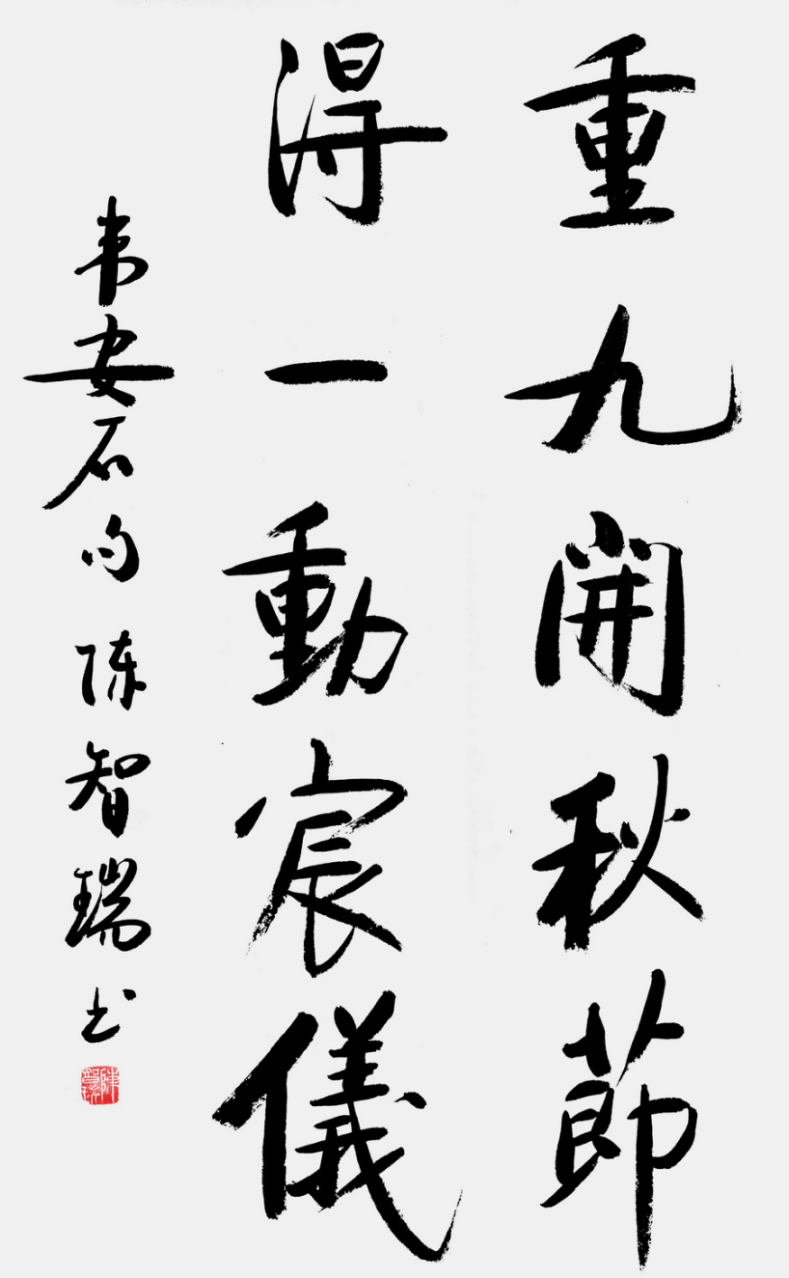 重九開秋節
得一動宸儀
韦安石句 陈智瑞书